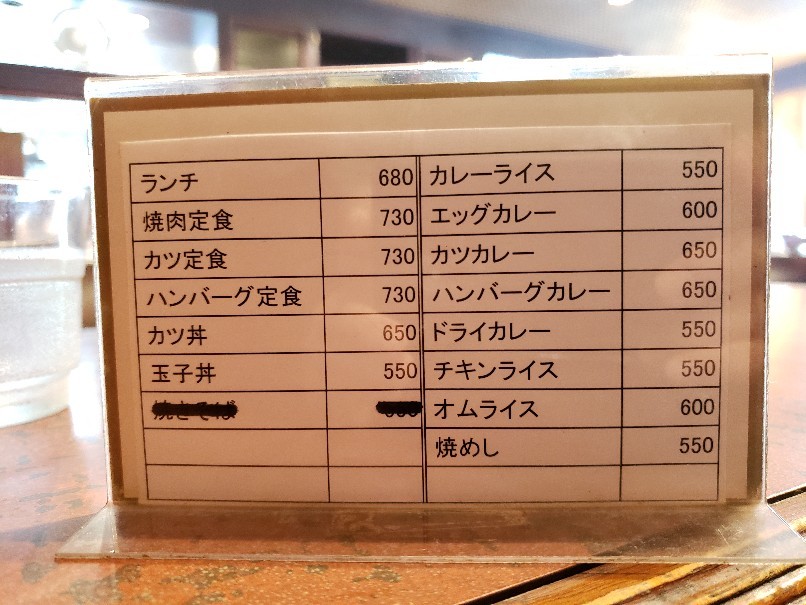 ランチ 680
焼肉定食 730
カツ定食 730
ハンバーグ定食 730
カツ丼 650
玉子丼 550
焼きそば
カレーライス 550
エッグカレー 600
カツカレー 650
ハンバーグカレー 650
ドライカレー 550
チキンライス 550
オムライス 600
焼めし 550